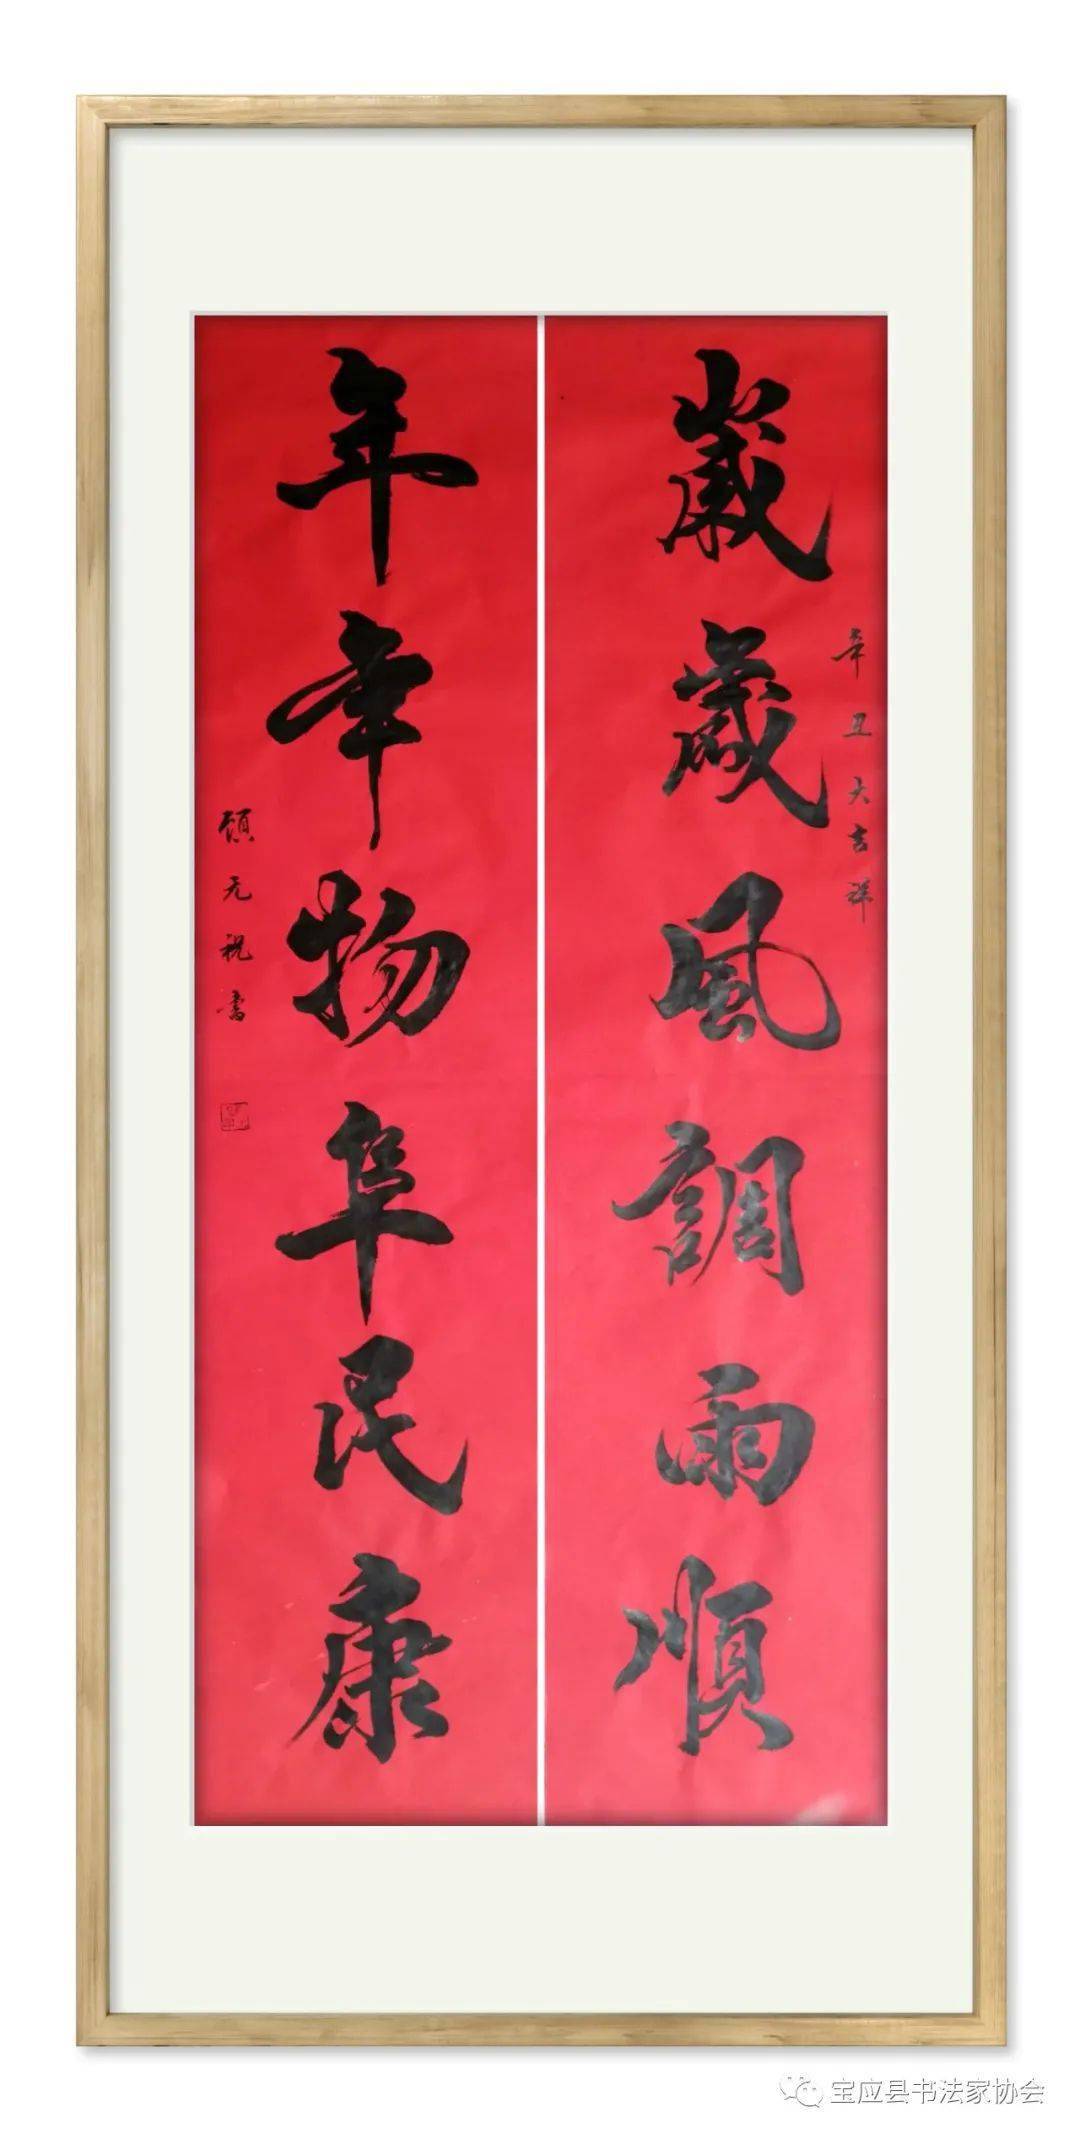 歲歲風調雨順
辛丑大吉祥
年年物阜民康
顧元祝書
宝应县书法家协会